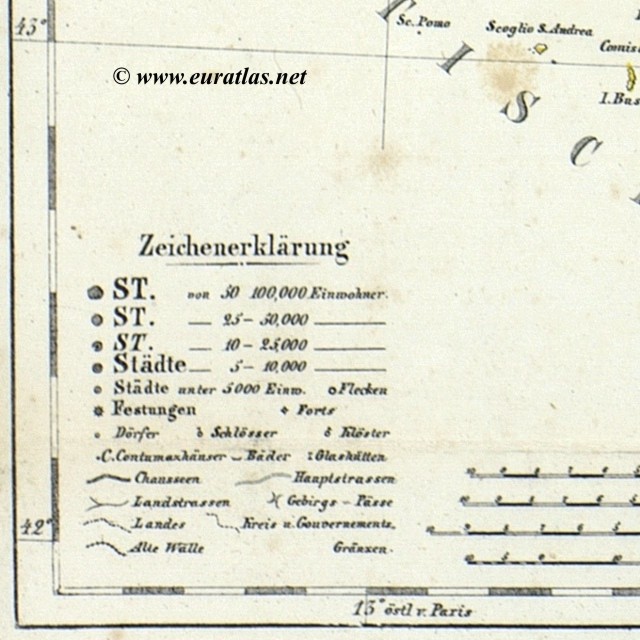 43°
Sc. Pomo
Scoglio S. Andrea
Comis
I. Bus
T I S C
© www.euratlas.net
Zeichenerklärung
ST. von 50 100,000 Einwohner.
ST. — 25 – 50,000 —
ST. — 10 – 25,000 —
Städte — 5 – 10,000 —
Städte unter 5000 Einw. Flecken
Festungen Forts
Dörfer Schlösser Klöster
C. Contumazhäuser Bäder Glashütten
Chausseen Hauptstrassen
Landstrassen Gebirgs – Pässe
Landes Kreis u. Gouvernements.
Alte Wälle Gränzen.
42°
10 9 8 7 6 5
10 9 8 7 6 5
10 9 8 7 6 5
10 5 0 10
15° östl v. Paris